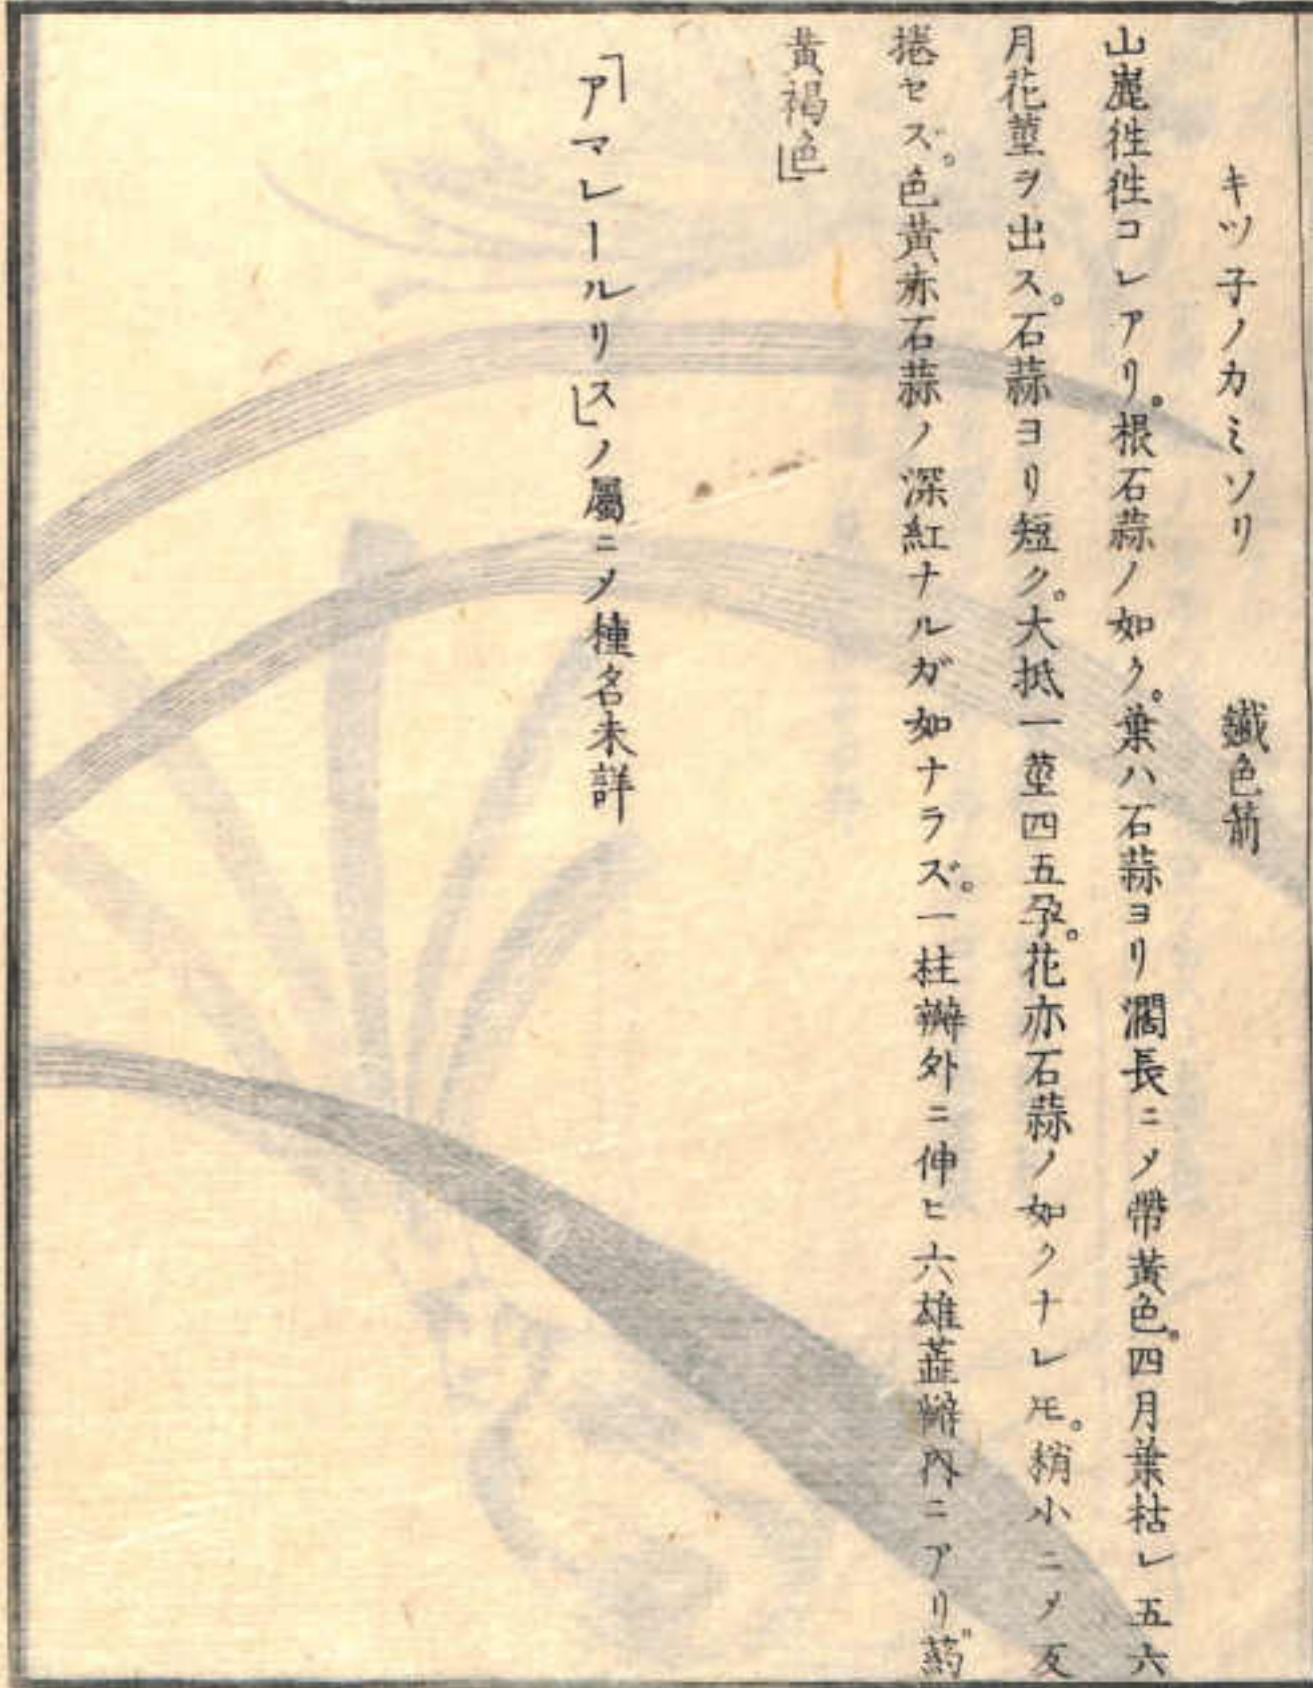 キツ子ノカミソリ 鐵色箭
山麓徃徃コレアリ。根石蒜ノ如ク。葉ハ石蒜ヨリ濶長ニ〆帶黃色。四月葉枯レ五六
月花莖ヲ出ス。石蒜ヨリ短ク。大抵一莖四五孕。花亦石蒜ノ如クナレ𪜈。稍小ニ〆反
捲セズ。色黃赤石蒜ノ深紅ナルガ如ナラズ。一柱瓣外ニ伸ヒ六雄蕋瓣內ニアリ。葯
黃褐色」
「アマレールリス」ノ屬ニ〆種名未詳